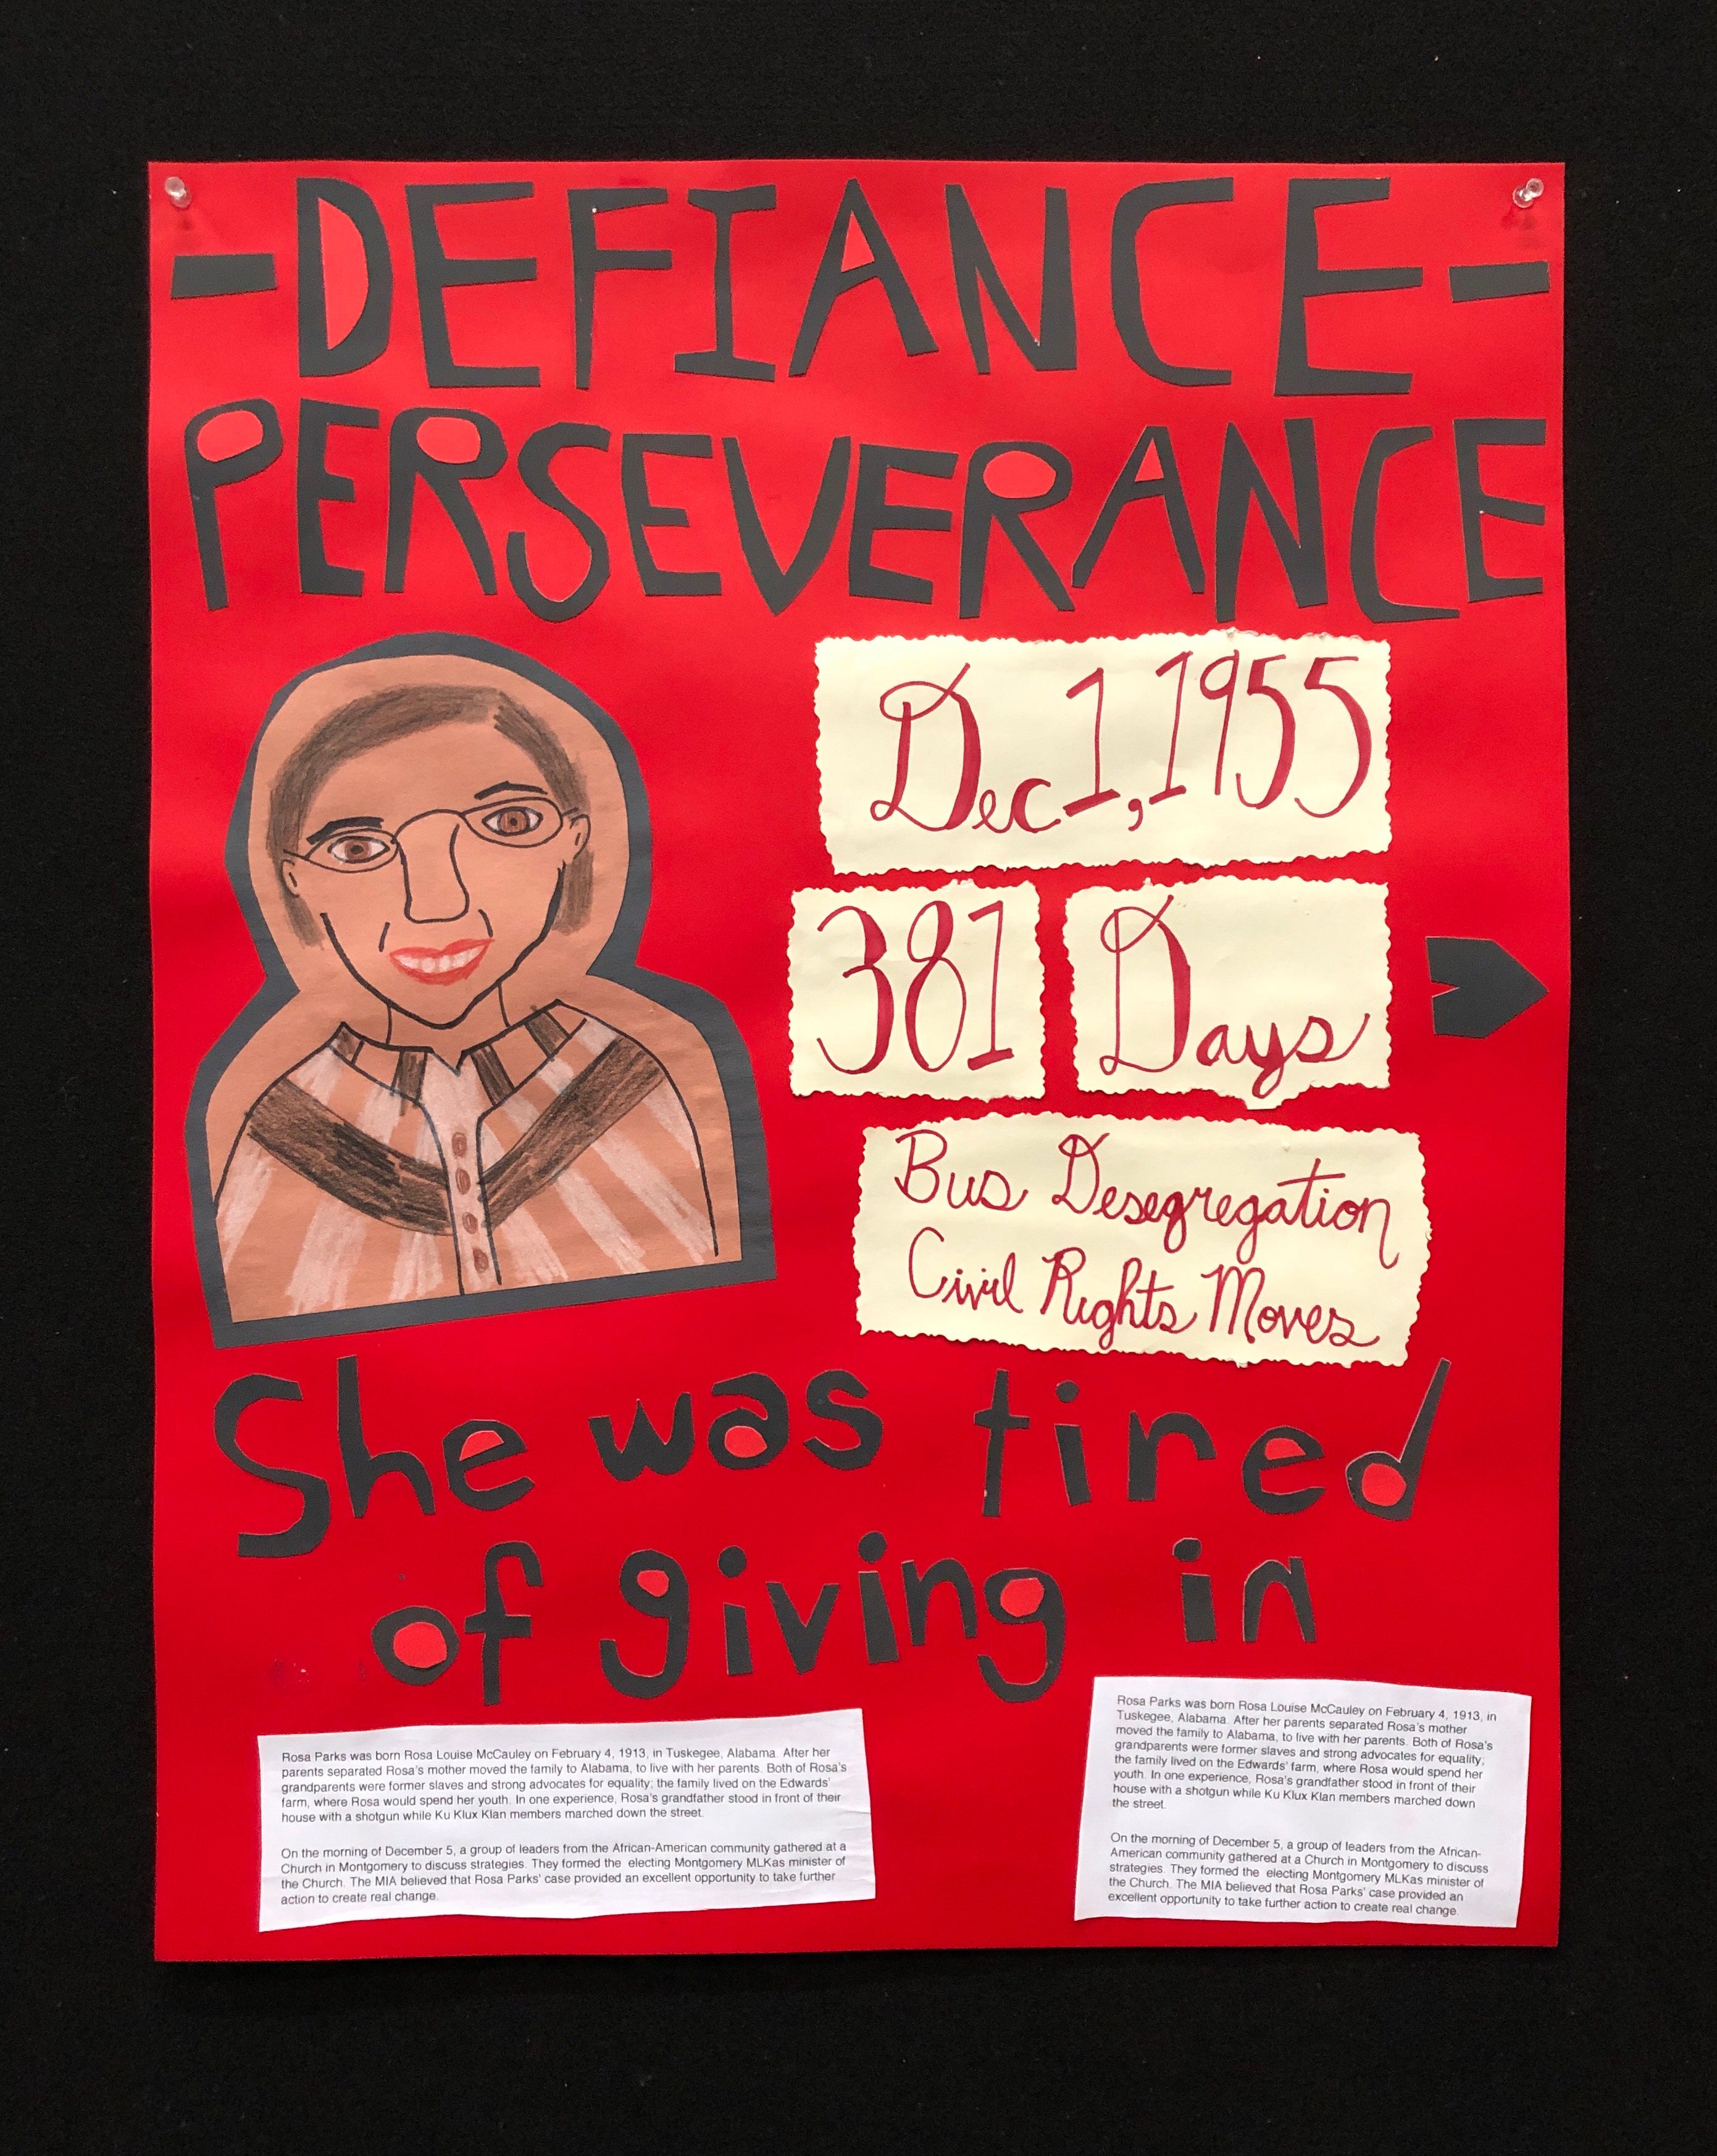 -DEFIANCE-
PERSEVERANCE
Dec 1, 1955
381 Days
Bus Desegregation
Civil Rights Moves
She was tired
of giving in
Rosa Parks was born Rosa Louise McCauley on February 4, 1913, in Tuskegee, Alabama. After her
parents separated Rosa's mother moved the family to Alabama, to live with her parents. Both of Rosa's
grandparents were former slaves and strong advocates for equality; the family lived on the Edwards'
farm, where Rosa would spend her youth. In one experience, Rosa's grandfather stood in front of their
house with a shotgun while Ku Klux Klan members marched down the street.
On the morning of December 5, a group of leaders from the African-American community gathered at a
Church in Montgomery to discuss strategies. They formed the electing Montgomery MLKas minister of
the Church. The MIA believed that Rosa Parks' case provided an excellent opportunity to take further
action to create real change.
Rosa Parks was born Rosa Louise McCauley on February 4, 1913, in
Tuskegee, Alabama. After her parents separated Rosa's mother
moved the family to Alabama, to live with her parents. Both of Rosa's
grandparents were former slaves and strong advocates for equality;
the family lived on the Edwards' farm, where Rosa would spend her
youth. In one experience, Rosa's grandfather stood in front of their
house with a shotgun while Ku Klux Klan members marched down
the street.
On the morning of December 5, a group of leaders from the African-
American community gathered at a Church in Montgomery to discuss
strategies. They formed the electing Montgomery MLKas minister of
the Church. The MIA believed that Rosa Parks' case provided an
excellent opportunity to take further action to create real change.